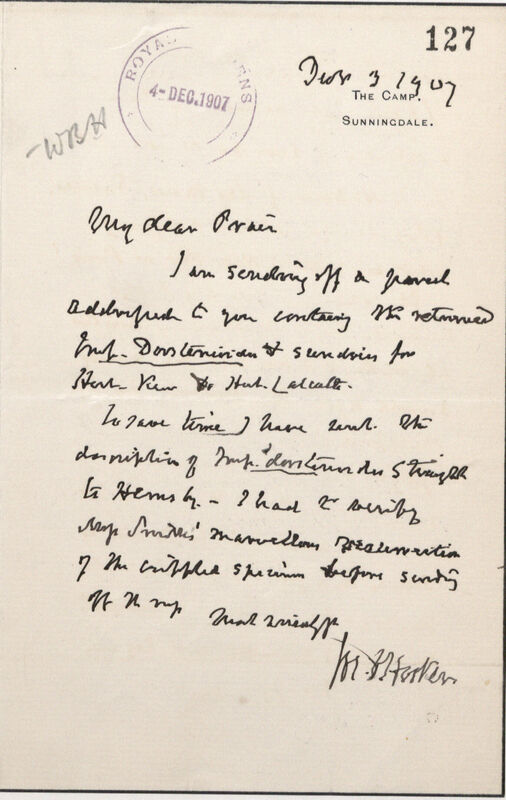 127
ROYAL GARDENS
4-DEC.1907
Decr 3 1907
THE CAMP.
SUNNINGDALE.
WBH
My dear Prain
I am sending off a parcel
addressed to you containg the returned
Imp. & sundries for
Herb. Kew & Herb. Calcutta.
To save time I have sent the
description of Imp. straight
to Hemsley. - I had to verify
Miss Smith's marvellous resurrection
of the crippled specimen before sending
off the
Most sincerely
Jos. D Hooker.